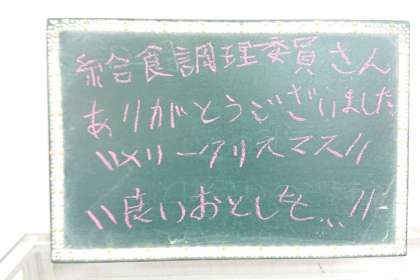 給食調理委員さん
ありがとうございました
\\メリークリスマス//
\\良いおとしを...//